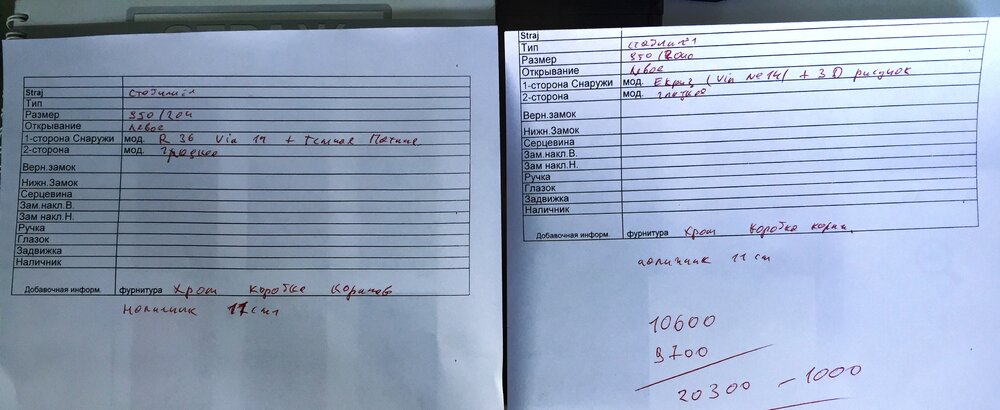 СТРАЖ
Straj стабилит
Тип
Размер 950/204
Открывание левое
1-сторона Снаружи мод. R 36 Vin 14 + Темная Патина
2-сторона мод. гладкое
Верн.замок
Нижн.Замок
Серцевина
Зам.накл.В.
Зам накл.Н.
Ручка
Глазок
Задвижка
Наличник
Добавочная информ. фурнитура Хром коробка Коричнев
наличник 11 см
Straj
Тип
Размер 950/2040
Открывание левое
1-сторона Снаружи мод. (Vin №14) + 3D рисунок
2-сторона мод. гладкое
Верн.замок
Нижн.Замок
Серцевина
Зам.накл.В.
Зам накл.Н.
Ручка
Глазок
Задвижка
Наличник
Добавочная информ. фурнитура Хром коробка корич
наличник 11 см
10600
9700
20300 - 1000